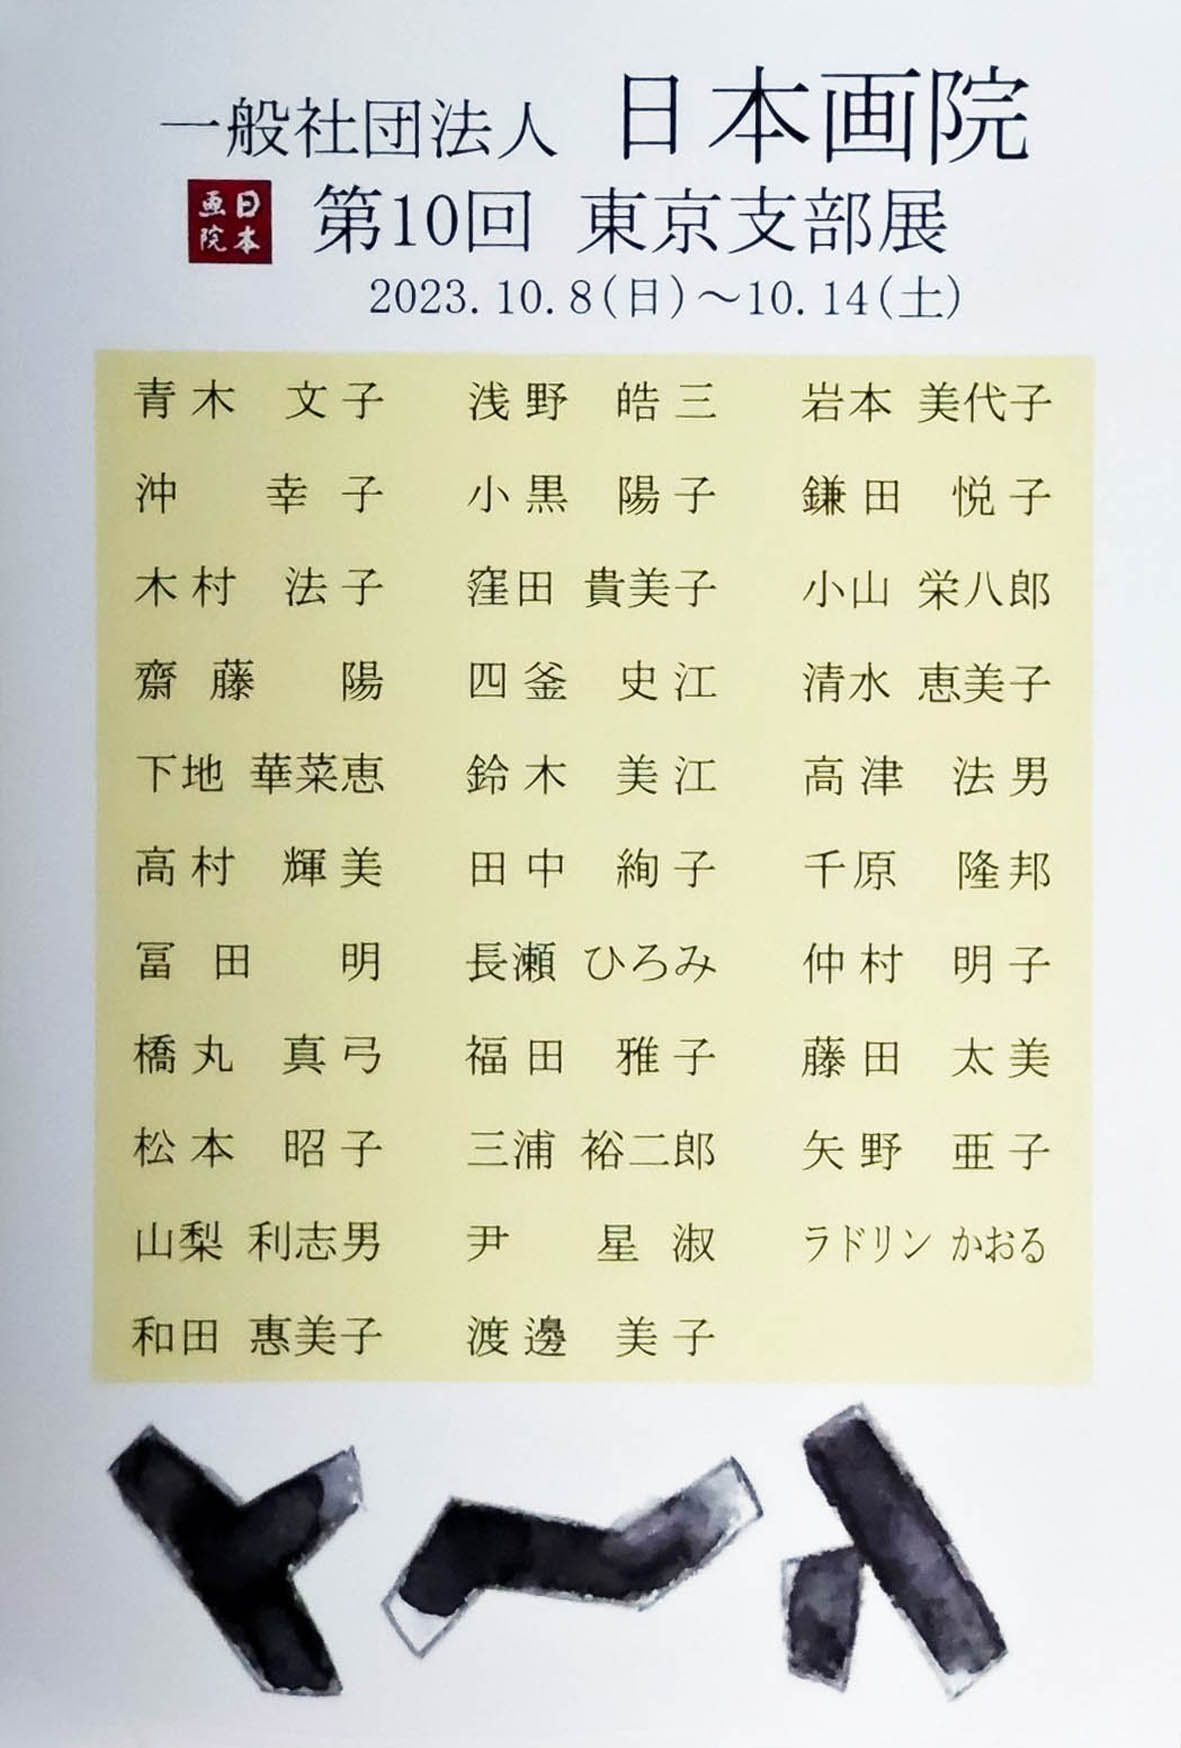 一般社団法人 日本画院
日本画院
第10回 東京支部展
2023.10.8(日)～10.14(土)
青木 文子 浅野 皓三 岩本 美代子
沖 幸子 小黒 陽子 鎌田 悦子
木村 法子 窪田 貴美子 小山 栄八郎
齋藤 陽 四釜 史江 清水 恵美子
下地 華菜恵 鈴木 美江 高津 法男
高村 輝美 田中 絢子 千原 隆邦
冨田 明 長瀬 ひろみ 仲村 明子
橋丸 真弓 福田 雅子 藤田 太美
松本 昭子 三浦 裕二郎 矢野 亜子
山梨 利志男 尹 星淑 ラドリン かおる
和田 惠美子 渡邊 美子